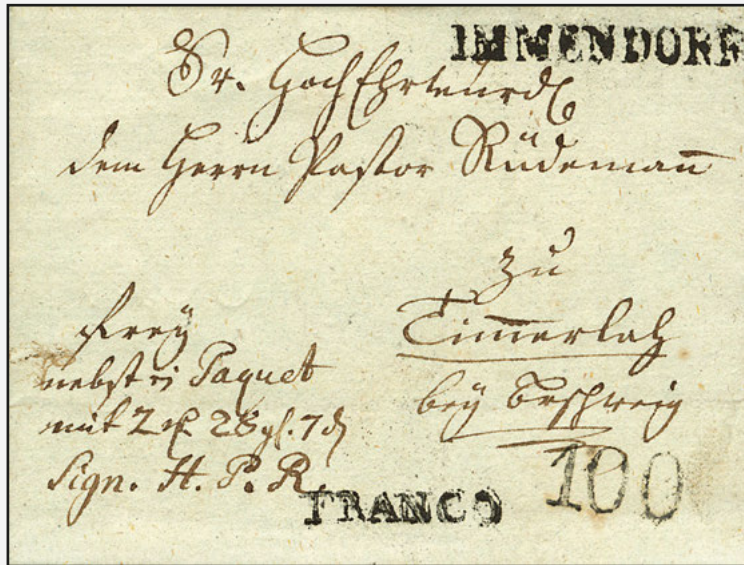 IMMENDORF
Sr. HochEhrwürd
dem Herrn Pastor Rüdeman̄
zu
Tim̄erlah
bey Brschweig
frey
nebst Paquet
mit 2 28 gl. 7
Sign. H. P. R.
FRANCO
100